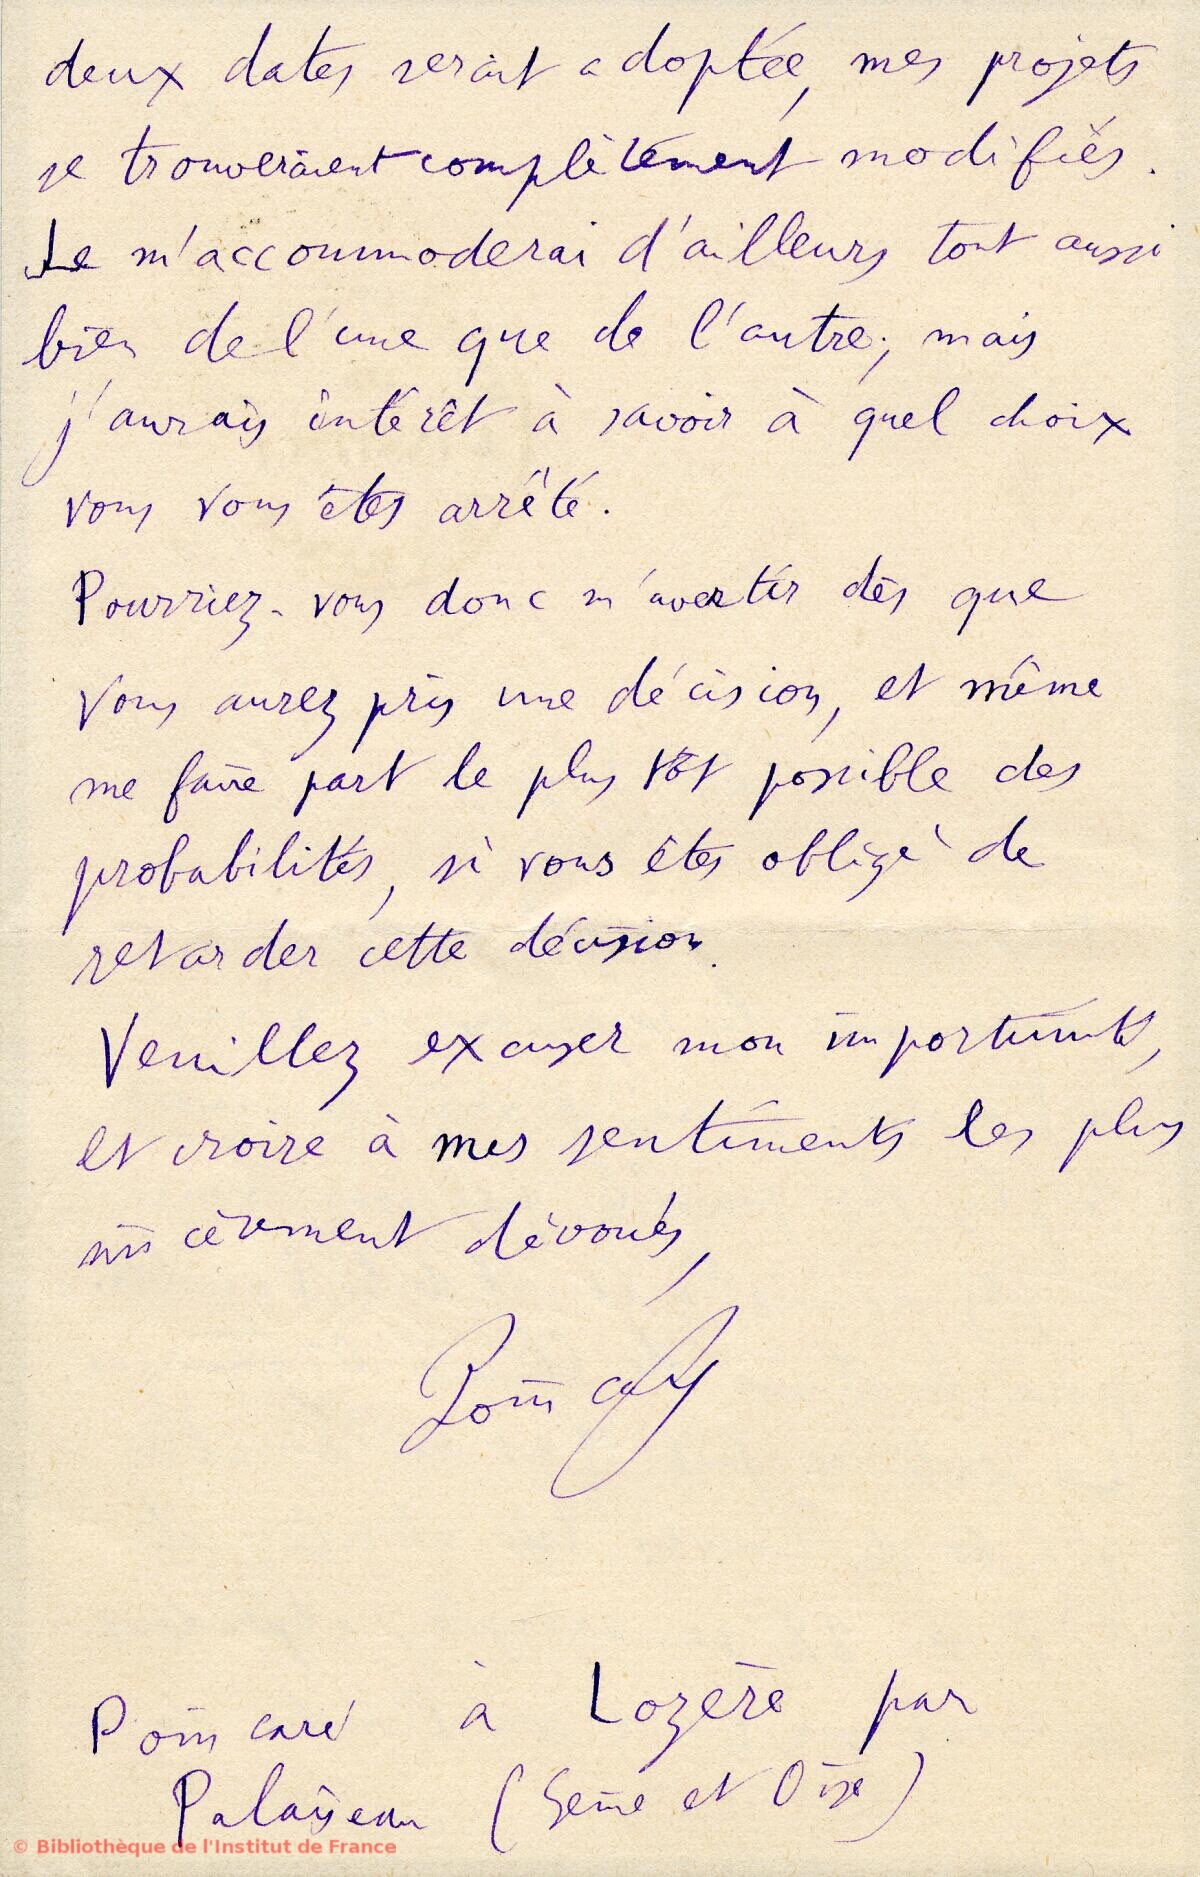 deux dates serait adoptée, mes projets
se trouveraient complètement modifiés.
Je m'accommoderai d'ailleurs tout aussi
bien de l'une que de l'autre; mais
j'aurais intérêt à savoir à quel choix
vous vous êtes arrêté.
Pourriez-vous donc m'avertir dès que
vous aurez pris une décision, et même
me faire part le plus tôt possible des
probabilités, si vous êtes obligé de
retarder cette décision.
Veuillez excuser mon importunité,
et croire à mes sentiments les plus
sincèrement dévoués,
Poincaré
Poincaré à Lozère par
Palaiseau (Seine et Oise)
© Bibliothèque de l'Institut de France